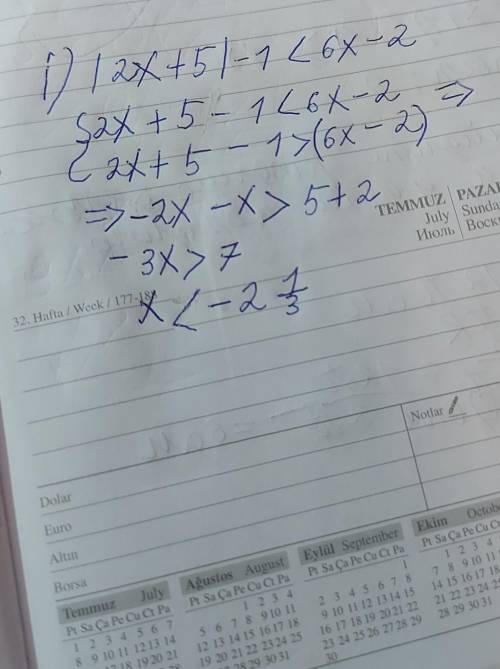 i) |2x+5|-1<6x-2
{2x+5-1<6x-2
{2x+5-1>(6x-2) =>
=>-2x-x>5+2
-3x>7
x<-2 1/3
TEMMUZ PAZAR
July Sunday
Июль Воск
32. Hafta / Week / 177-18
Notlar
Dolar
Euro
Altın
Borsa
Temmuz July
Pt Sa Ça Pe Cu Ct Pa
1 2 3 4 5 6 7
8 9 10 11 12 13 14
17 18 19 20 21
Ağustos August
Pt Sa Ça Pe Cu Ct Pa
1 2 3 4
5 6 7 8 9 10 11
12 13 14 15 16 17 18
19 20 21 22 23 24 25
26 27 28 29 30 31
Eylül September
Pt Sa Ça Pe Cu Ct Pa
1
2 3 4 5 6 7 8
9 10 11 12 13 14 15
16 17 18 19 20 21 22
23 24 25 26 27 28 29
30
Ekim October
Pt Sa Ça Pe Cu
1 2 3 4
7 8 9 10 11
14 15 16 17 18
21 22 23 24 25
28 29 30 31